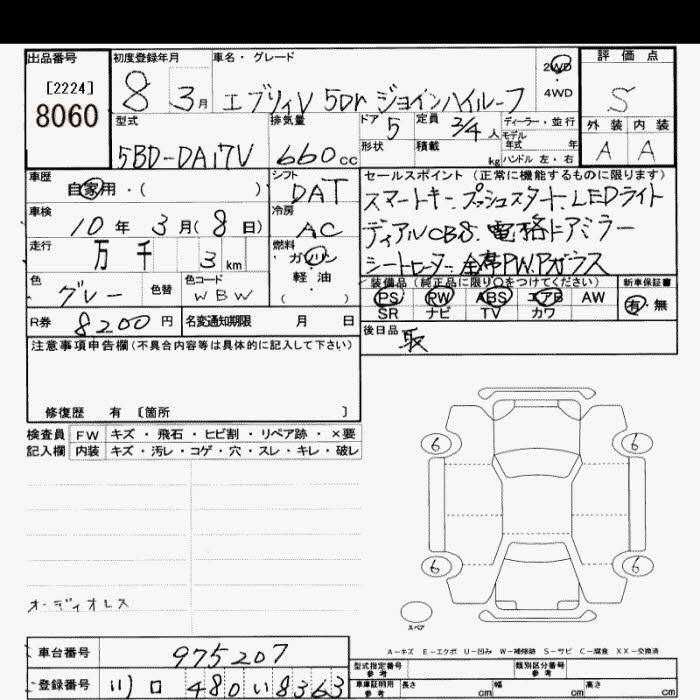 出品番号 初度登録年月 車名・グレード 評価点
[2224]
8060
8 3月 エブリィV 5Dr ジョインハイルーフ 2WD・4WD S
型式 排気量 ドア 定員 ディーラー・並行 外装 内装
5BD-DA17V 660cc 5 2/4人 モデル年式 年 A A
形状 積載 kg ハンドル 左・右
車歴 シフト セールスポイント (正常に機能するものに限ります)
自家用・( ) DAT スマートキー.プッシュスタート.LEDライト
車検 冷房
10年 3月(8日) AC ディアルCBS.電格ドアミラー
走行 燃料
万 千 3km ガソリン シートヒーター.全席PW.Pガラス
軽・油
( )
色 色替 色コード 装備品 (純正品に限り〇をつけてください) 新車保証書
グレー WBW PS RW ABS エアB AW 有・無
SR ナビ TV カワ
R券 8200円 名変通知期限 月 日 後日品 取
注意事項申告欄(不具合内容等は具体的に記入して下さい)
修復歴 有 [箇所 ]
検査員 FW キズ・飛石・ヒビ割・リペア跡・×要
記入欄 内装 キズ・汚レ・コゲ・穴・スレ・キレ・破レ
6 6
6 6
オーディオレス
スペア
A-キズ E-エクボ U-凹み W-補修跡 S-サビ C-腐食 XX-交換済
車台番号 975207
型式指定番号 参考 類別区分番号 参考
登録番号 川口 480 い 8363
車庫証明用 参考 長さ cm 幅 cm 高さ cm